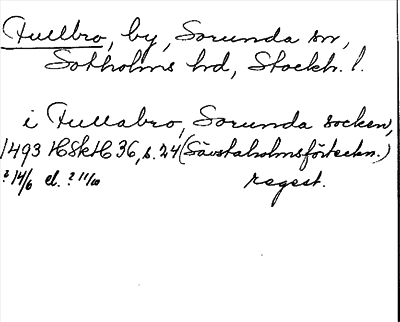 Fullbro, by, Sorunda sn,
Sotholms hd, Stockh. l.
i Fullabro, Sorunda socken,
1493 HSkH 36, s. 24 (Sävstaholmsförteckn.)
? 14/6 el. ? 11/10 regest.